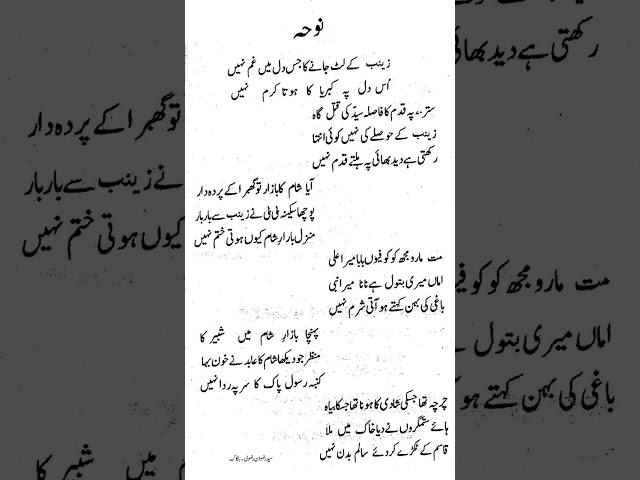 نوحہ
زینب کے لٹ جانے کا جس دل میں غم نہیں
اُس دل پہ کبریا کا ہوتا کرم نہیں
ستر۷۰ پہ قدم کا فاصلہ سیدؑ کی قتل گاہ
زینب کے حوصلے کی نہیں کوئی انتہا
رکھتی ہے دید بھائی پہ ہلتے قدم نہیں
آیا شام کا بازار تو گھبرا کے پردہ دار
پوچھا سکینہ بی بی نے زینب سے بار بار
منزل بازارِ شام کیوں ہوتی ختم نہیں
مت مارو مجھ کو کوفیوں بابا میرا علی
اماں میری بتول ہے نانا میرا نبی
باغی کی بہن کہتے ہو آتی شرم نہیں
پہنچا بازارِ شام میں شبیر کا
منظر جو دیکھا شام کا عابد نے خون بہا
کنبہ رسول پاک کا سر پہ ردا نہیں
چرچہ تھا جسکی شادی کا ہونا تھا جسکا بیاہ
ہائے ستمگروں نے دیا خاک میں ملا
قاسم کے ٹکڑے کر دئے سالم بدن نہیں
سید رضوان رضوی
رکھتی ہے دید بھائی
تو گھبرا کے پردہ دار
نے زینب سے بار بار
کیوں ہوتی ختم نہیں
مت مارو مجھ کو کوفیو
اماں میری بتول ہے
باغی کی بہن کہتے ہو
میں شبیر کا